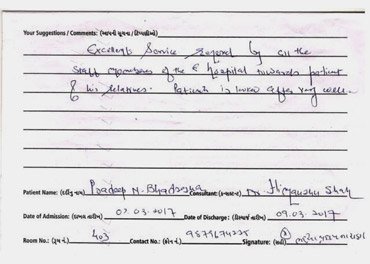 Your Suggestions / Comments: (આપની સૂચના / ટિપ્પણીઓ)
Excellent Service by all the
Staff members of the hospital towards patient
& his relatives. Patient is looked after very well.
Patient Name: (દર્દીનું નામ) Pradeep N. Consultant: (કન્સલ્ટન્ટ) Dr. Himanshu Shah
Date of Admission: (દાખલ તારીખ) 07.03.2017 Date of Discharge: (ડિસ્ચાર્જ તારીખ) 09.03.2017
Room No.: (રૂમ નં.) 403 Contact No.: (ફોન નં.) Signature: (સહી)